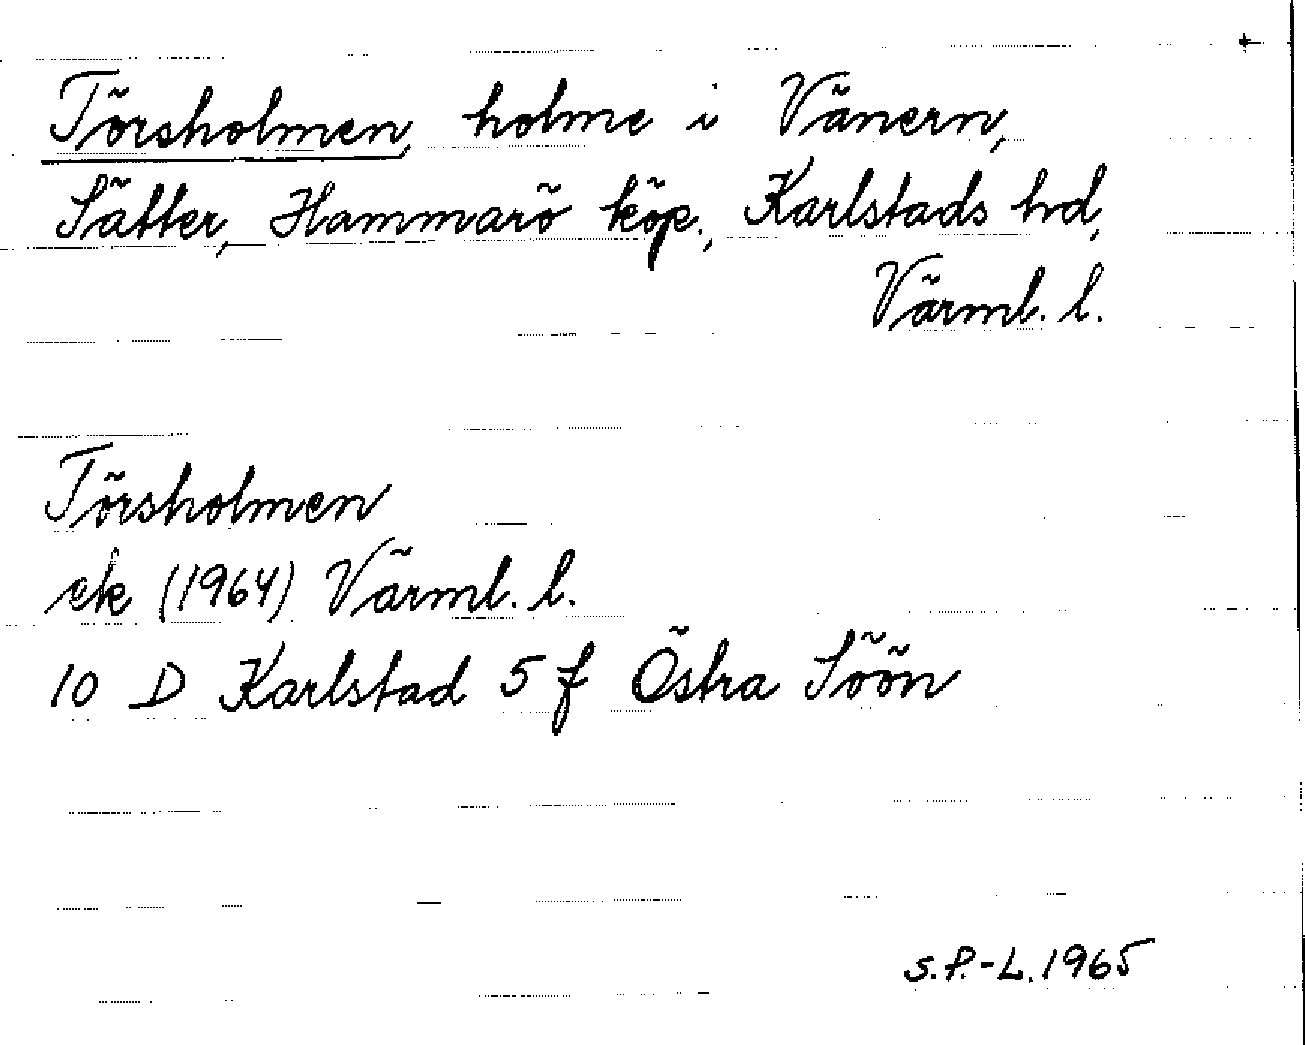 Törsholmen, holme i Vänern,
Sätter, Hammarö köp., Karlstads hd,
Värml. l.
Törsholmen
ek (1964) Värml. l.
10 D Karlstad 5 f Östra Söön
S.P.-L. 1965